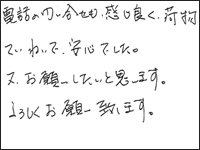 電話の问い合せも、感じ良く、荷物
ていねいで、安心でした。
又、お願いしたいと思います。
よろしくお願い致します。